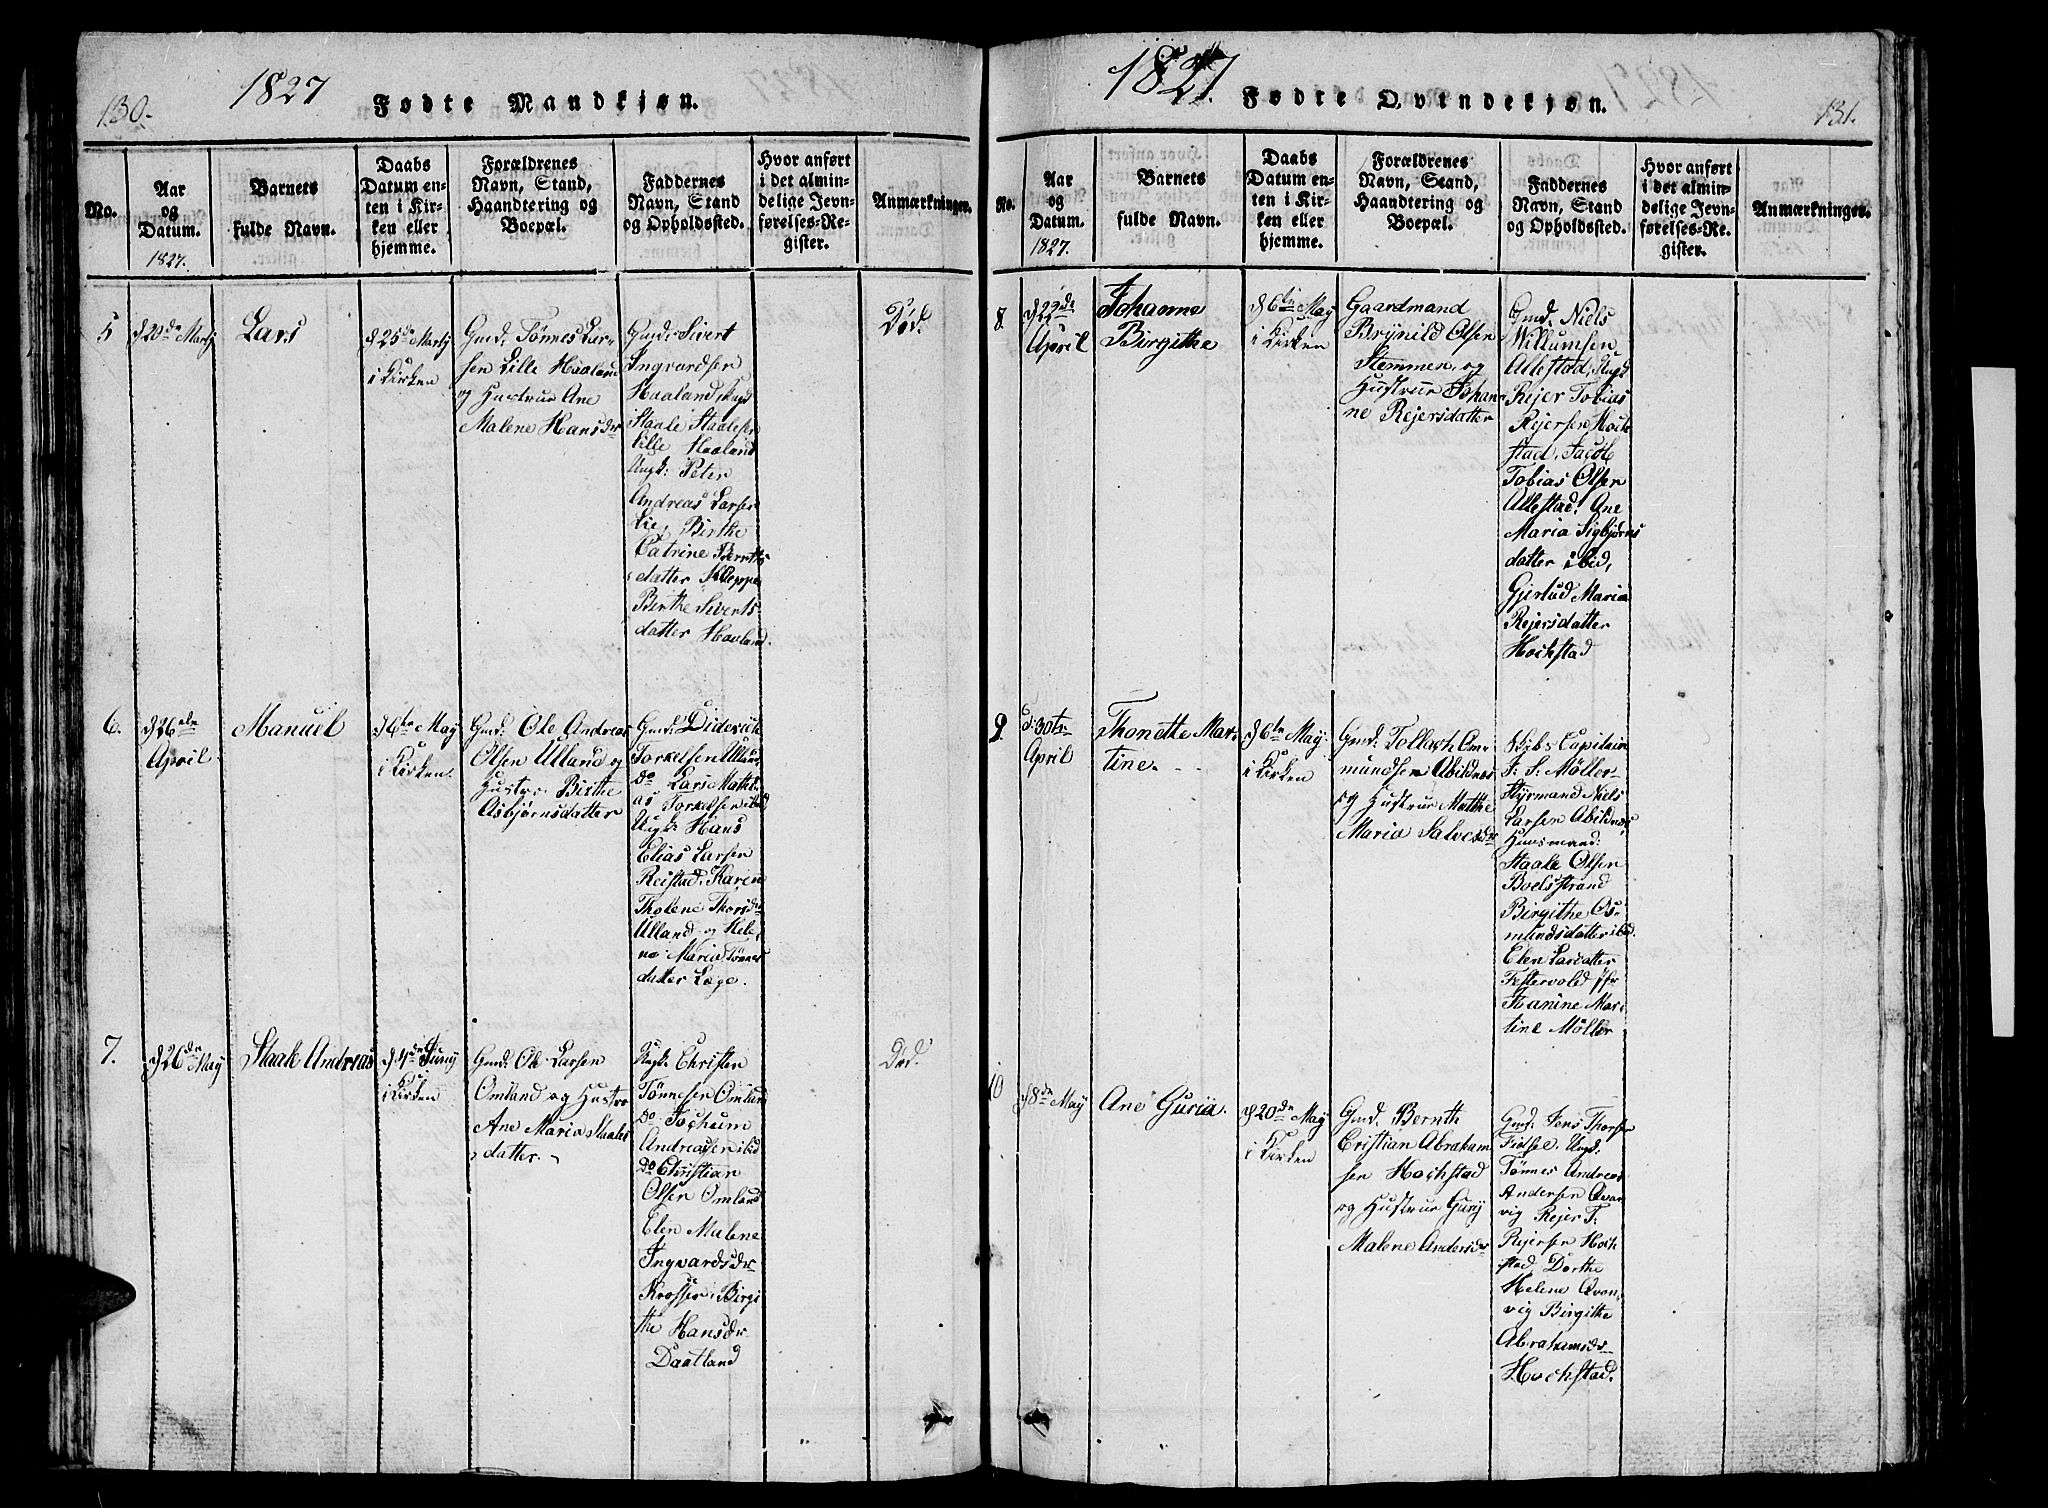 130.
1827
Fødte Mandkjøn.
No.
Aar
og
Datum.
1827.
Barnets
fulde Navn.
Daabs
Datum en-
ten i Kir-
ken eller
hjemme.
Forældrenes
Navn, Stand,
Haandtering og
Boepæl.
Faddernes
Navn, Stand
og Opholdssted.
Hvor anført
i det almin-
delige Jevn-
førelses-Re-
gister.
Anmærkninger.
5
d 20de Martj
Lars
d 25de Martj
i Kirken
Gmd. Tønnes Lar-
sen Lille Haaland
og Hustrue Ane
Malene Hansdr
Gmd: Sivert
Ingvardsen
Haaland, Ungk
Staale Staalesen
Lille Haaland
Ungk: Peter
Andreas Larsen
Lie, Birthe
Catrine Bernts-
datter Kleppe
Birthe Siverts-
datter Haaland.
Død.
6.
d 26de
April
Manuel
d 6te May
i Kirken.
Gmd: Ole Andreas
Olsen Ulland og
Hustro Birthe
Asbjørnsdatter
Gmd: Diderich
Torkelsen Ullan
do Lars Mathi-
as Torkelsen ibid
Ungk: Hans
Elias Larsen
Reistad, Karen
Tholene Thorsdr
Ulland og Hele-
ne Maria Tønnes
datter Lege.
7.
d 26de May
Staale Andreas
d 4de Junij
i Kirken
Gmd: Ole Larsen
Omland og Hustro
Ane Maria Staales
datter.
Ungk: Christen
Tønnesen Omland
do Jochum
Andreasen ibid
do Christian
Olsen Omland
Elen Malene
Ingvardsdr
Krosse Birgi
the Hansdr
Daatland
Død.
1827.
Fødte Qvindekjøn.
131.
No.
Aar
og
Datum.
1827.
Barnets
fulde Navn.
Daabs
Datum en-
ten i Kir-
ken eller
hjemme.
Forældrenes
Navn, Stand,
Haandtering og
Boepæl.
Faddernes
Navn, Stand
og Opholdssted.
Hvor anført
i det almin-
delige Jevn-
førelses-Re-
gister.
Anmærkninger.
8
d 22de
April
Johanne
Birgithe
d 6te May
i Kirken
Gaardmand
Brynild Olsen
Stemmen, og
Hustrue Johan-
ne Rejersdatter
Gmd. Niels
Willumsen
Allestad, Ungk
Rejer Tobias
Rejersen Hoch
stad, Jacob
Tobias Olsen
Allestad. Ane
Maria Sigbjørns
datter ibid,
Gjertud Maria
Rejersdatter
Hochstad
9.
d: 30te
April
Thonette Mar-
tine.
d 6te May.
i Kirken
Gmd: Tollach Om-
mundsen Abildnes
og Hustrue Mathe
Maria Salvesdr
Skibs Capitain
F. S. Møller
Styrmand Niels
Larsen Abildnæs
Huusmand:
Staale Olsen
Boelsstrand
Birgithe Os-
mundsdatter ibid.
Elen Larsdatter
Festervold Jfr
Hanine Mar-
tine Møller
10
d 8de May
Ane Guria.
d 20de May
i Kirken
Gmd. Bernth
Cristian Abraham
sen Hochstad
og Hustrue Gurij
Malene Andersdr
Gmd: Jens Thorsen
Fidsel. Ungk.
Tønnes Andreas
Andersen Qvan
vig Rejer T.
Rejersen Hoch
stad, Dorthe
Helene Qvan-
vig Birgithe
Abrahamsdr
Hochstad.